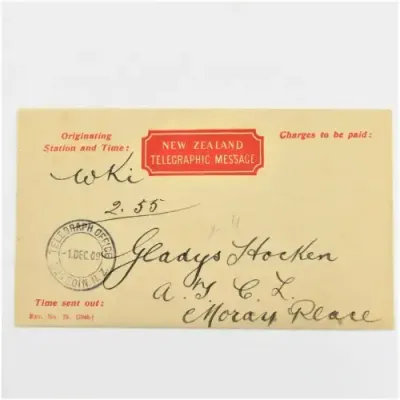 Originating
Station and Time:
NEW ZEALAND
TELEGRAPHIC MESSAGE
Charges to be paid:
WKi
2.55
TELEGRAPH OFFICE
-1 DEC 09
DUNEDIN N.Z.
Gladys Hocken
A. T. C. L.
Moray Place
Time sent out: